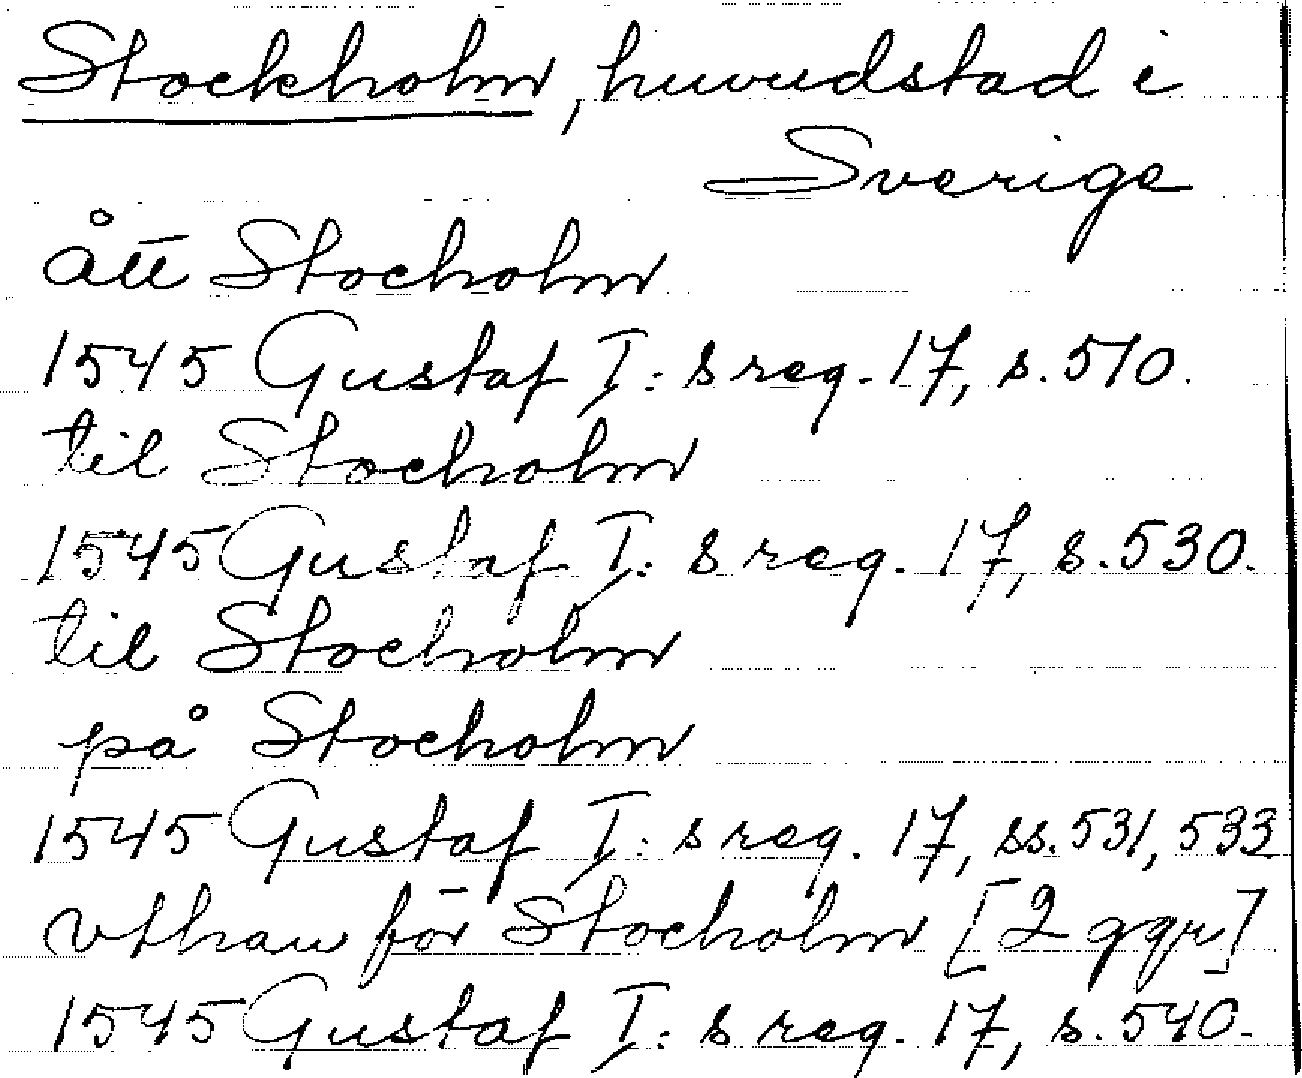 Stockholm, huvudstad i
Sverige
ått Stocholm
1545 Gustaf I: s reg. 17, s. 510.
til Stocholm
1545 Gustaf I: s reg. 17, s. 530.
til Stocholm
på Stocholm
1545 Gustaf I: s reg. 17, ss. 531, 533
vthan för Stocholm [2 ggr]
1545 Gustaf I: s reg. 17, s. 540.